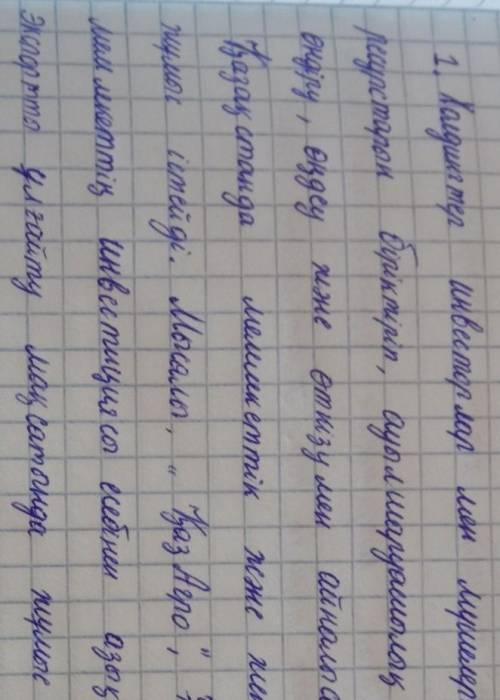 1. Холдингтер инвесторлар мен мүшелер
ресурстарын біріктіріп, ауылшаруашылық
өңдіру, өңдеу және өткізумен айналыса
Қазақстанда мемлекеттік және
жұмыс істейді. Мысалы, "ҚазАгро",
мемлекеттің инвестициясы есебінен азық
экспортты ұлғайту мақсатында жұмыс